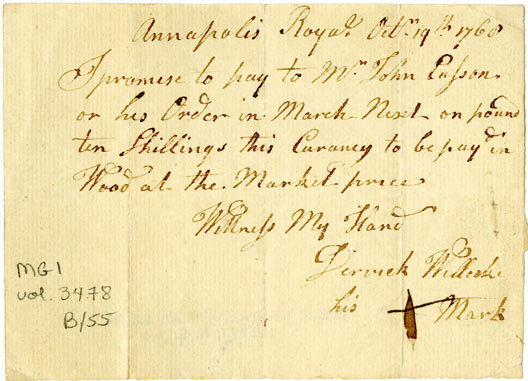 Annapolis Royal Octr 19th 1760
I promise to pay to Mr John Easson
or his Order in March Next on pound
ten Shillings this Curancy to be payd in
Wood at the Market price
Wittness My Hand
Dirrick
his Mark
MG1
vol. 3478
B/55